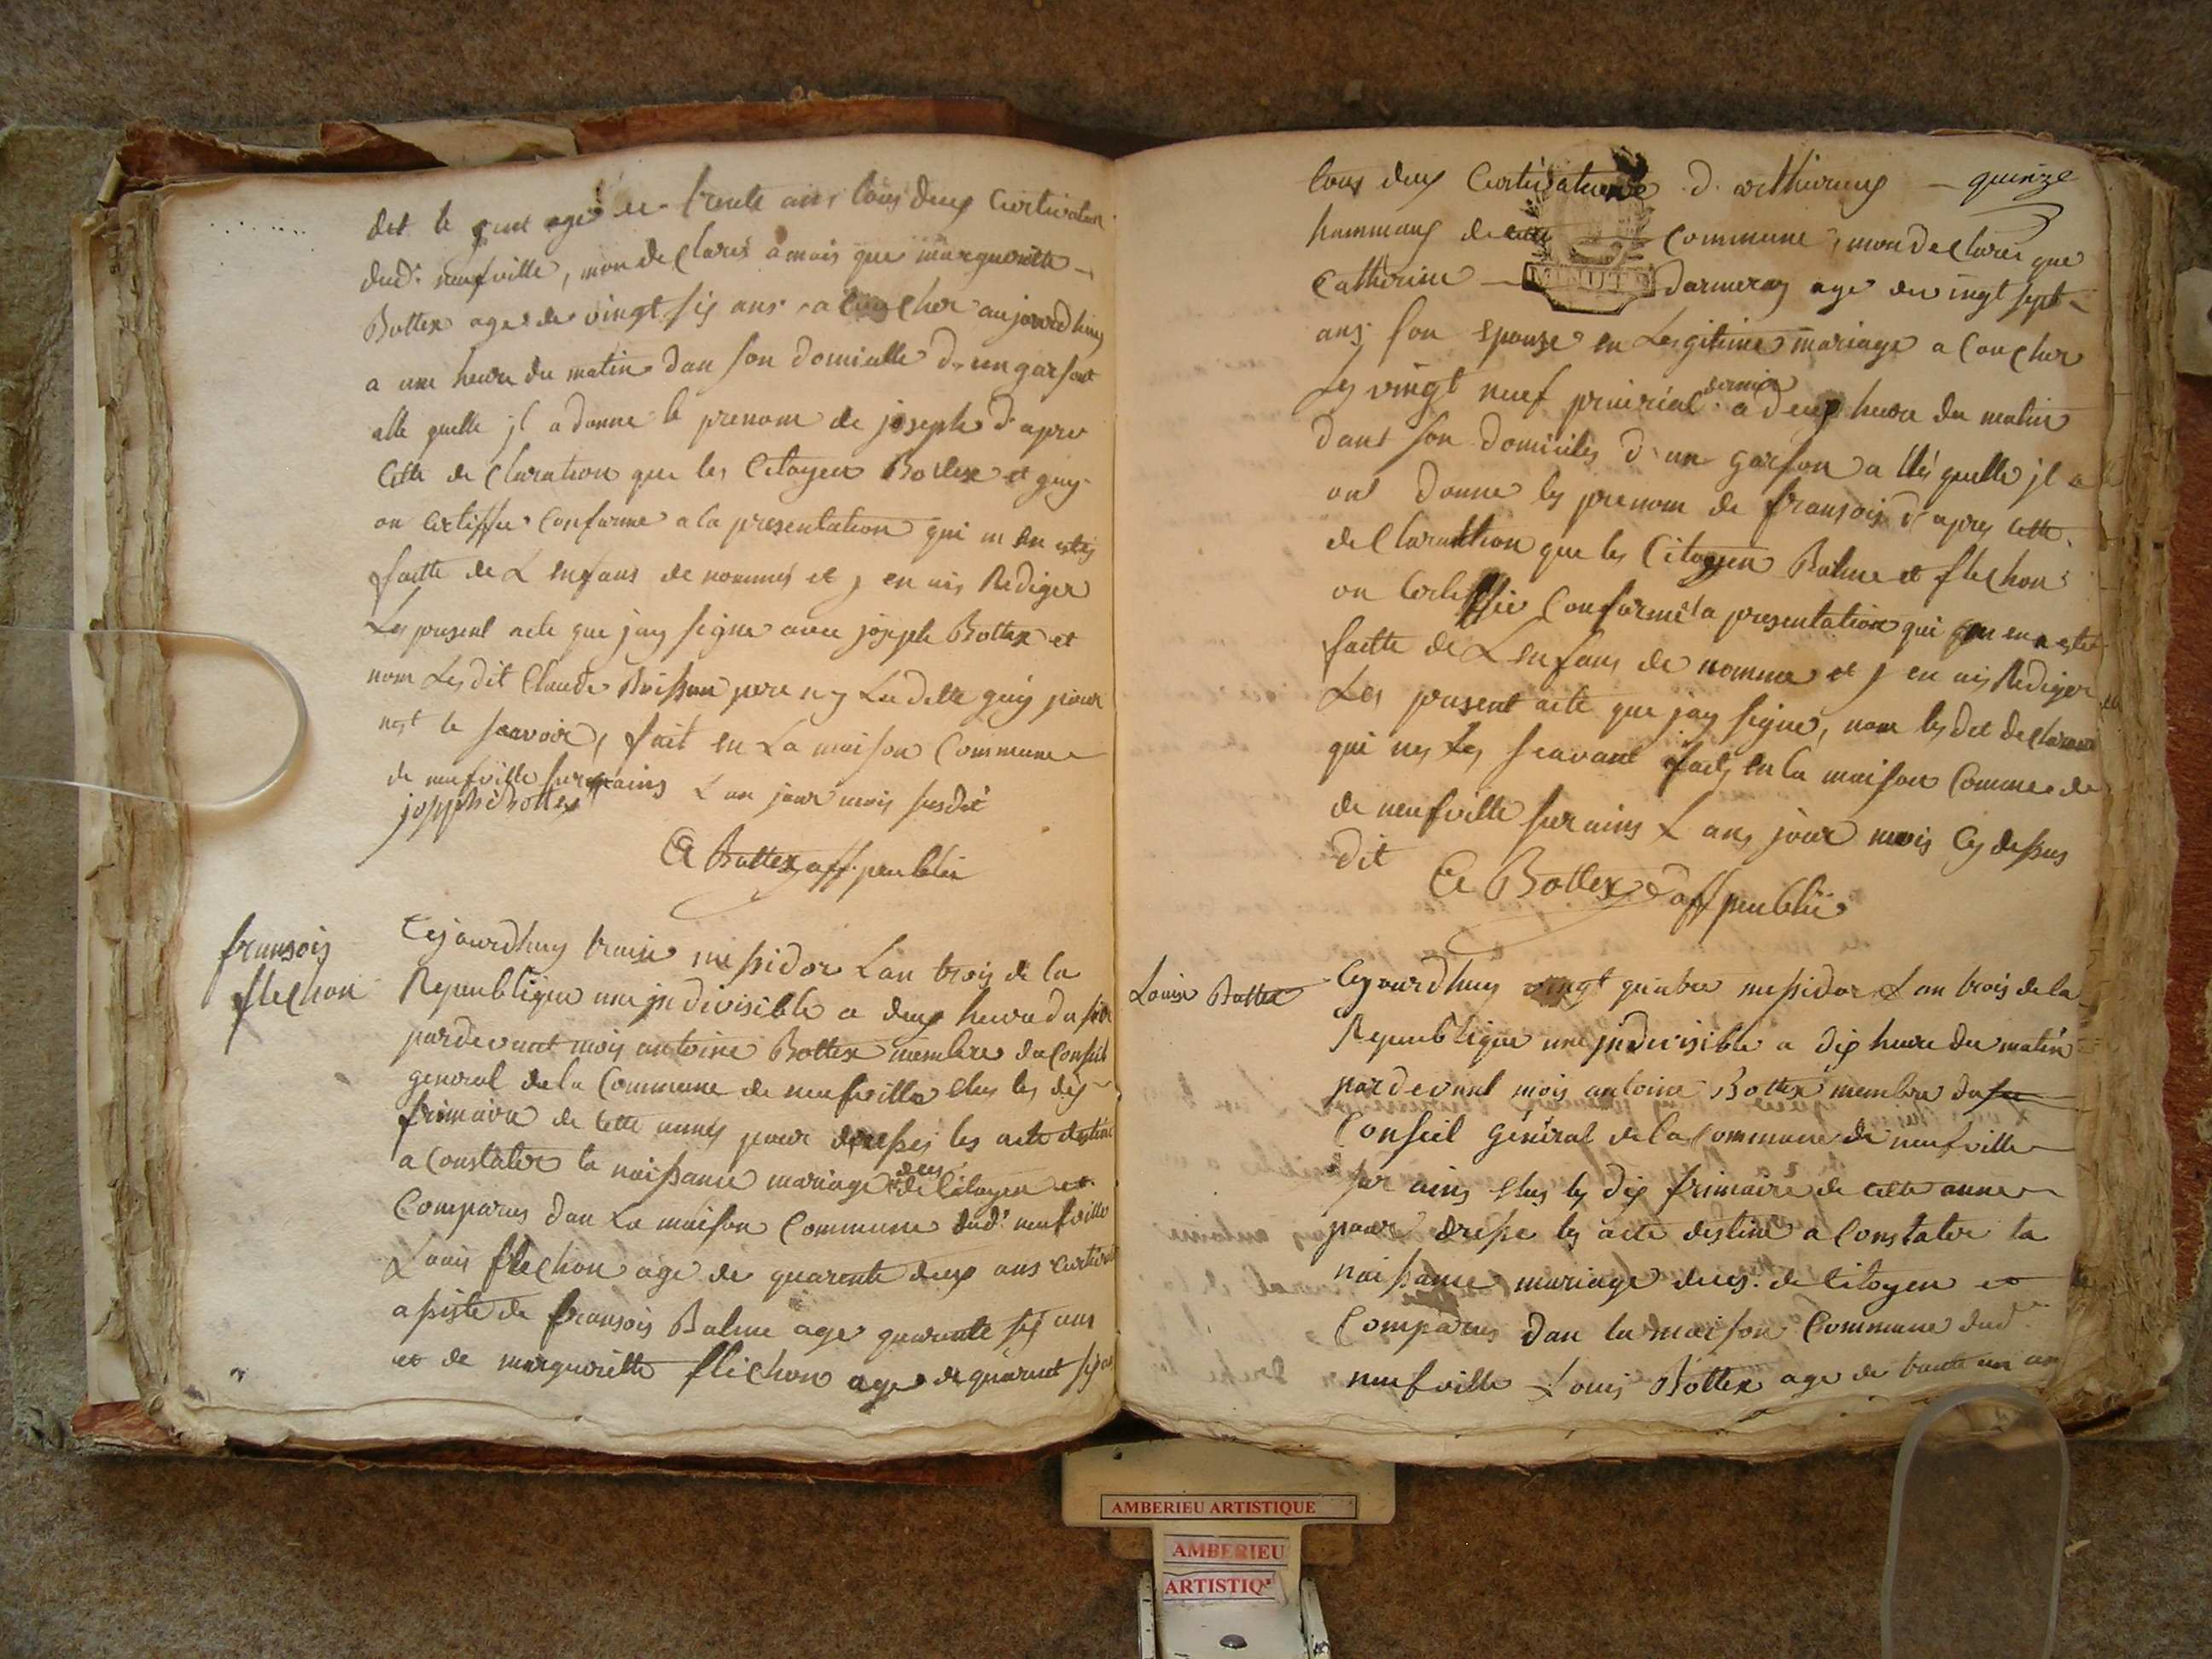 det le guit age de trente ans tous deux Cultivateur
dud: neufville, mon declarés a mois que marguerite
Bottex age de vingt six ans a coucher aujourdhuy
a une heure du matin dan son domicille d. un garsont
alle quelle jl a donne le prenom de joseph d'apre
Cette de Claration que les Citoyen Bottex et guy
on Certiffie Conforme a la presentation qui m en etes
faitte de L enfans de nommes et j en ais Rediger
Les present acte que jay signe avec joseph Bottex et
nom Lesdit Claude Buisson pere ny Laditte guy pour
nest le scavoir, fait en La maison Commune
de neufville sur ains L an jour mois susdit
joseph Bottex
A Bottex off. peublic
fransois
flechon
Cejourdhuy traise messidor Lan trois de la
Republique une jndivisible a deux heure du soir
pardevant mois antoine Bottex membre du Conseil
general de la Commune de neufville elus les dix
frimaire de cette annes pour dresses les acte destine
a Constater la naissance mariage deces de Citoyen et
Comparus dan La maison Commune dud: neufville
Louis flechon age de quarente deux ans Cultivat
assiste de fransois Balme age quarante six ans
et de margueritte flechon age de quarent six ans
tous deux Cultivateur d. arthurieux — quinze
hammaux de cette Commune, mon declares que
Catherine — Darmeray age de vingt sept
ans son epouse en Legitime mariage a Coucher
Les vingt neuf prairial dernier a deux heure du matin
dans son domiciles d'un garson a lés quelle jl a
ont donne les prenom de fransois d'apres cette
de Claration que les Citoyen Balme et flechon
on Certiffie Conforme la presentation qui m en a ete
faitte de L enfans de nomme et j en ais Rediger
Les present acte que jay signe, nom lesdit declarant
qui nes Les scavant fait en la maison Commune de
de neufville sur ains L ans jour mois Cy dessus
dit
A Bottex off peublic
Louise Bottex
Cejourdhuy vingt quatre messidor L an trois de la
Republique une jndivisible a dix heure du matin
pardevant mois antoine Bottex membre du
Conseil général de la Commune de neufville
sur ains elus les dix frimaire de cette anne
pour dresse les acte destine a Constater la
naissance mariage deces. de Citoyen et
Comparus dan la maison Commune dud.
neufville Louis Bottex age de trante un an
MINUTE
AMBERIEU ARTISTIQUE
AMBERIEU
ARTISTIQ